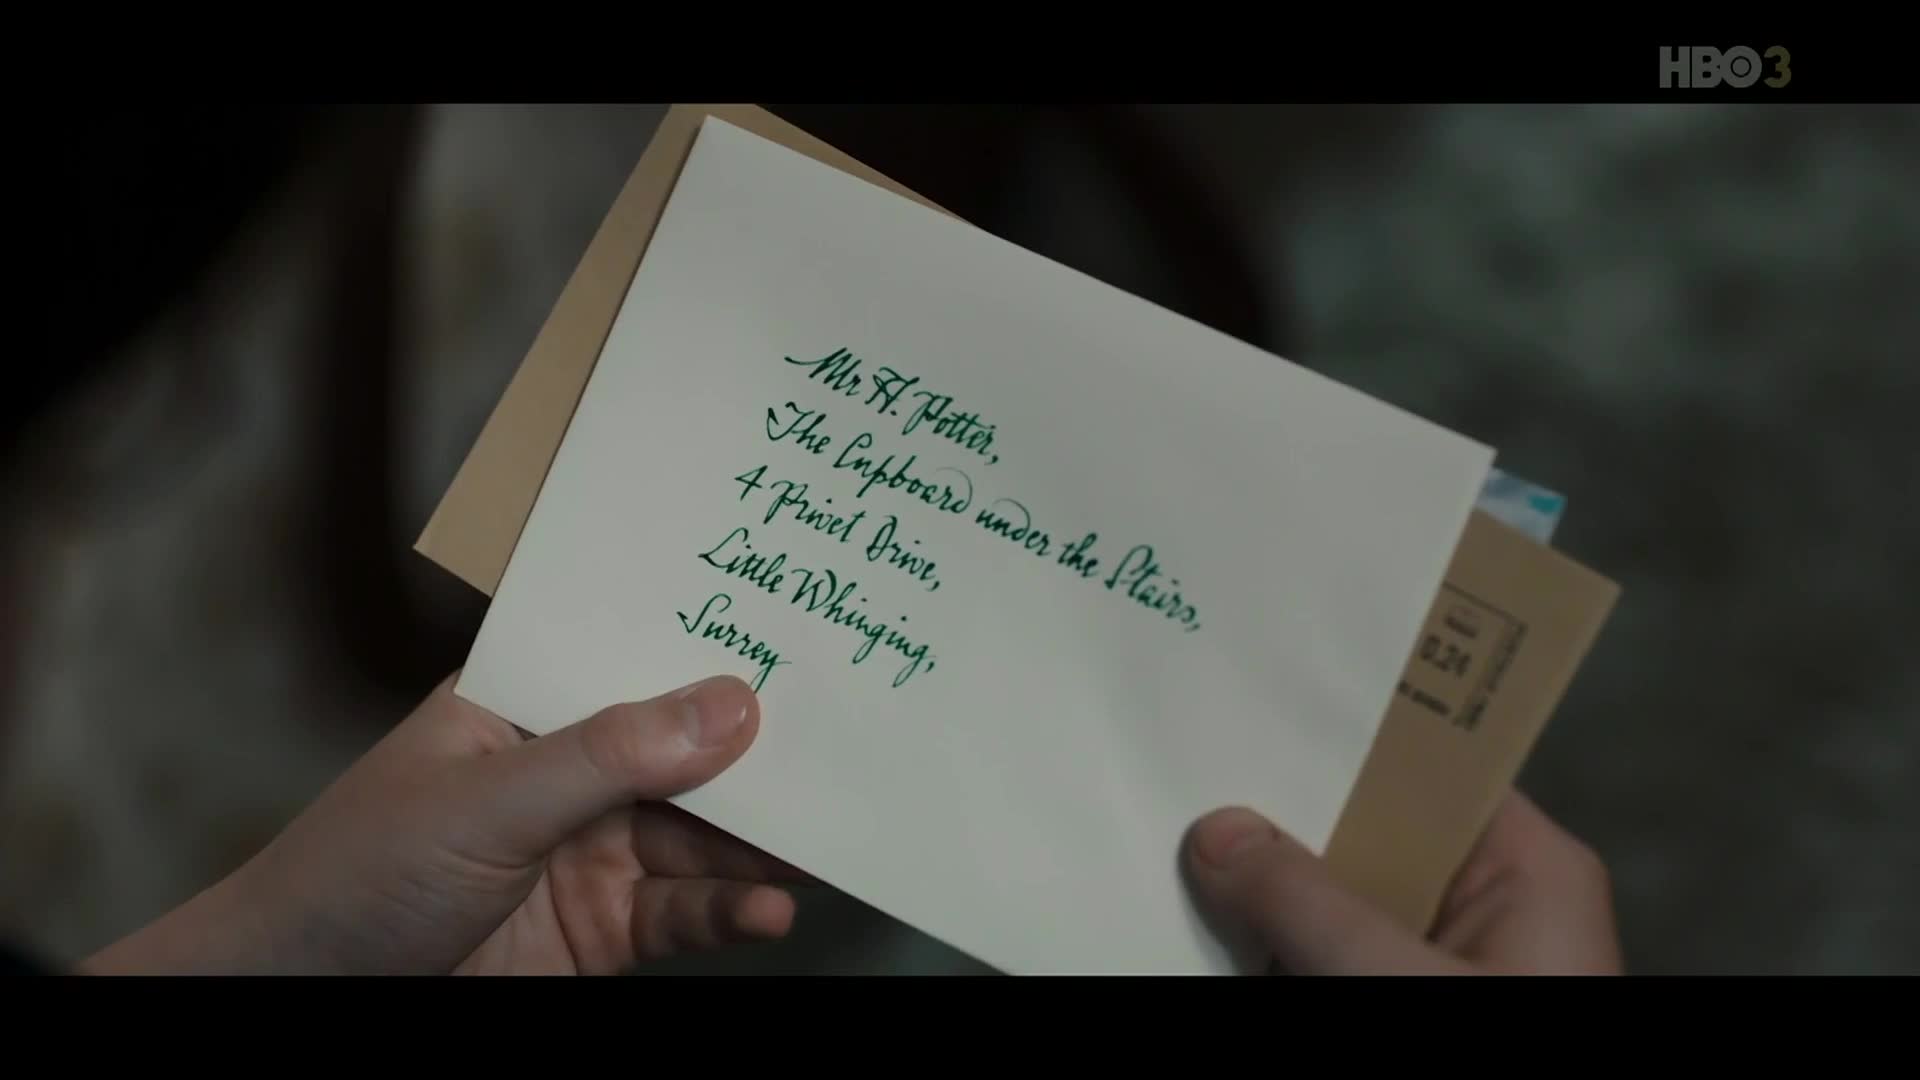 HBO3
Mr H. Potter,
The Cupboard under the Stairs,
4 Privet Drive,
Little Whinging,
Surrey
0.24